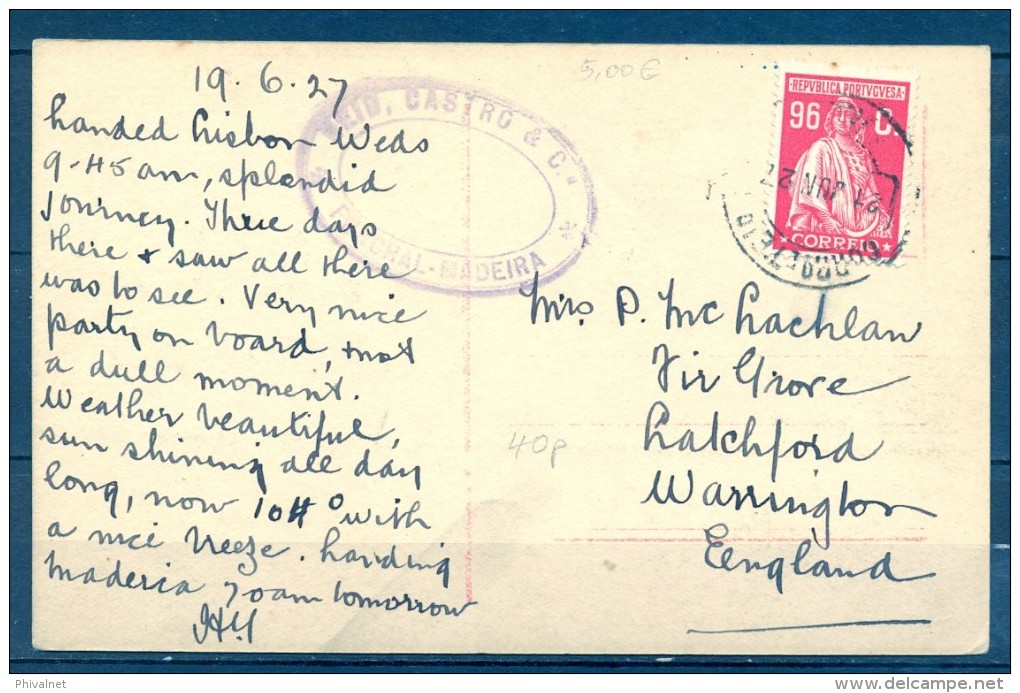 19.6.27
Landed Lisbon Weds
9-45 am, splendid
journey. Three days
there & saw all there
was to see. Very nice
party on board, & not
a dull moment.
Weather beautiful,
sun shining all day
long, now 104° with
a nice breeze. Landing
Maderia 7 oam tomorrow
REID, CASTRO & Cª
FUNCHAL-MADEIRA
5,00€
REPVBLICA PORTVGVESA
96 C.
CORREIO
21 JUN 27
Mrs P. McLachlan
Fir Grove
Latchford
Warrington
Eengland
40p
Phivalnet
delcampe.net